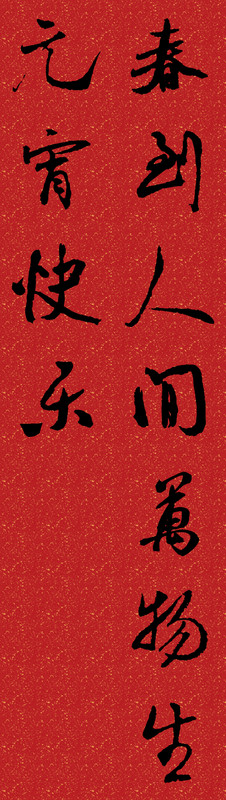 春到人间萬物生
元宵快乐